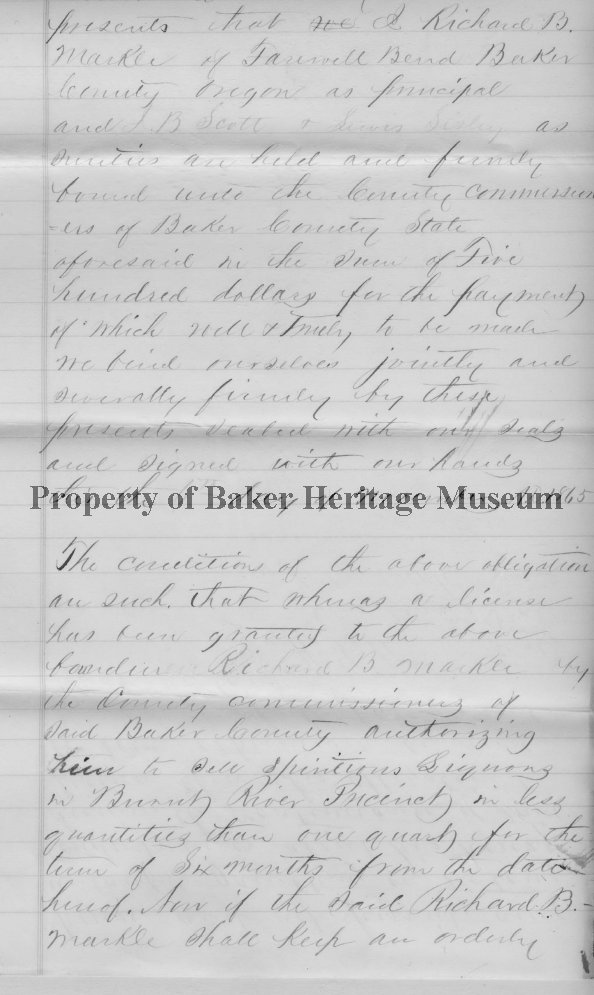 presents that we I Richard B.
Markle of Farewell Bend Baker
County Oregon as principal
and J. B Scott & Lewis as
Sureties are held and firmly
bound unto the County commission
-ers of Baker County State
aforesaid in the sum of Five
hundred dollars for the payment
of which well & truly to be made
we bind ourselves jointly and
severally firmly by these
presents sealed with our seals
and signed with our hands
Property of Baker Heritage Museum
day of 1865
The conditions of the above obligation
are such, that whereas a license
has been granted to the above
Richard B Markle by
the County commissioners of
said Baker County authorizing
him to sell Spiritious Liquors
in Burnt River Precinct in less
quantities than one quart for the
term of Six months from the date
hereof. Now if the said Richard B.-
Markle shall keep an orderly